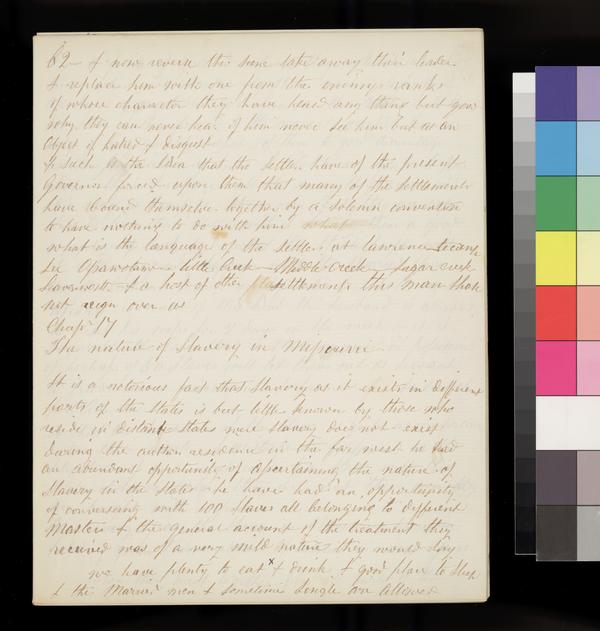 62 - I now revers the sene take away their leader
& replace him with one from the enemys ranks
of whose character they have heard any thing but good
why they can never hear of him never see him but as an
object of hatred & disgust
& such is the Idea that the settlers have of the present
Governor forced upon them that many of the settlements
have bound themselves together by a solemn convention
to have nothing to do with him
what is the language of the settlers at lawrence Tecum
see Osawotamie little Creek Middle Creek Sugar creek
& a host of other settlements this man shall
not reign over us
Chap 17
The nature of Slavery in Missourri
It is a notorious fact that Slavery as it exists in different
parts of the states is but little known by those who
reside in distant states were slavery does not exist
during the author residence in the far west he had
an abundant opportunity of ascertaining the nature of
Slavery in the states he have had an opportunity
of conversing with 100 Slaves all belonging to different
Masters & the general account of the treatment they
received was of a very mild nature they would say
we have plenty to eat x & drink & good place to sleep
& the married men & sometime single are allowed